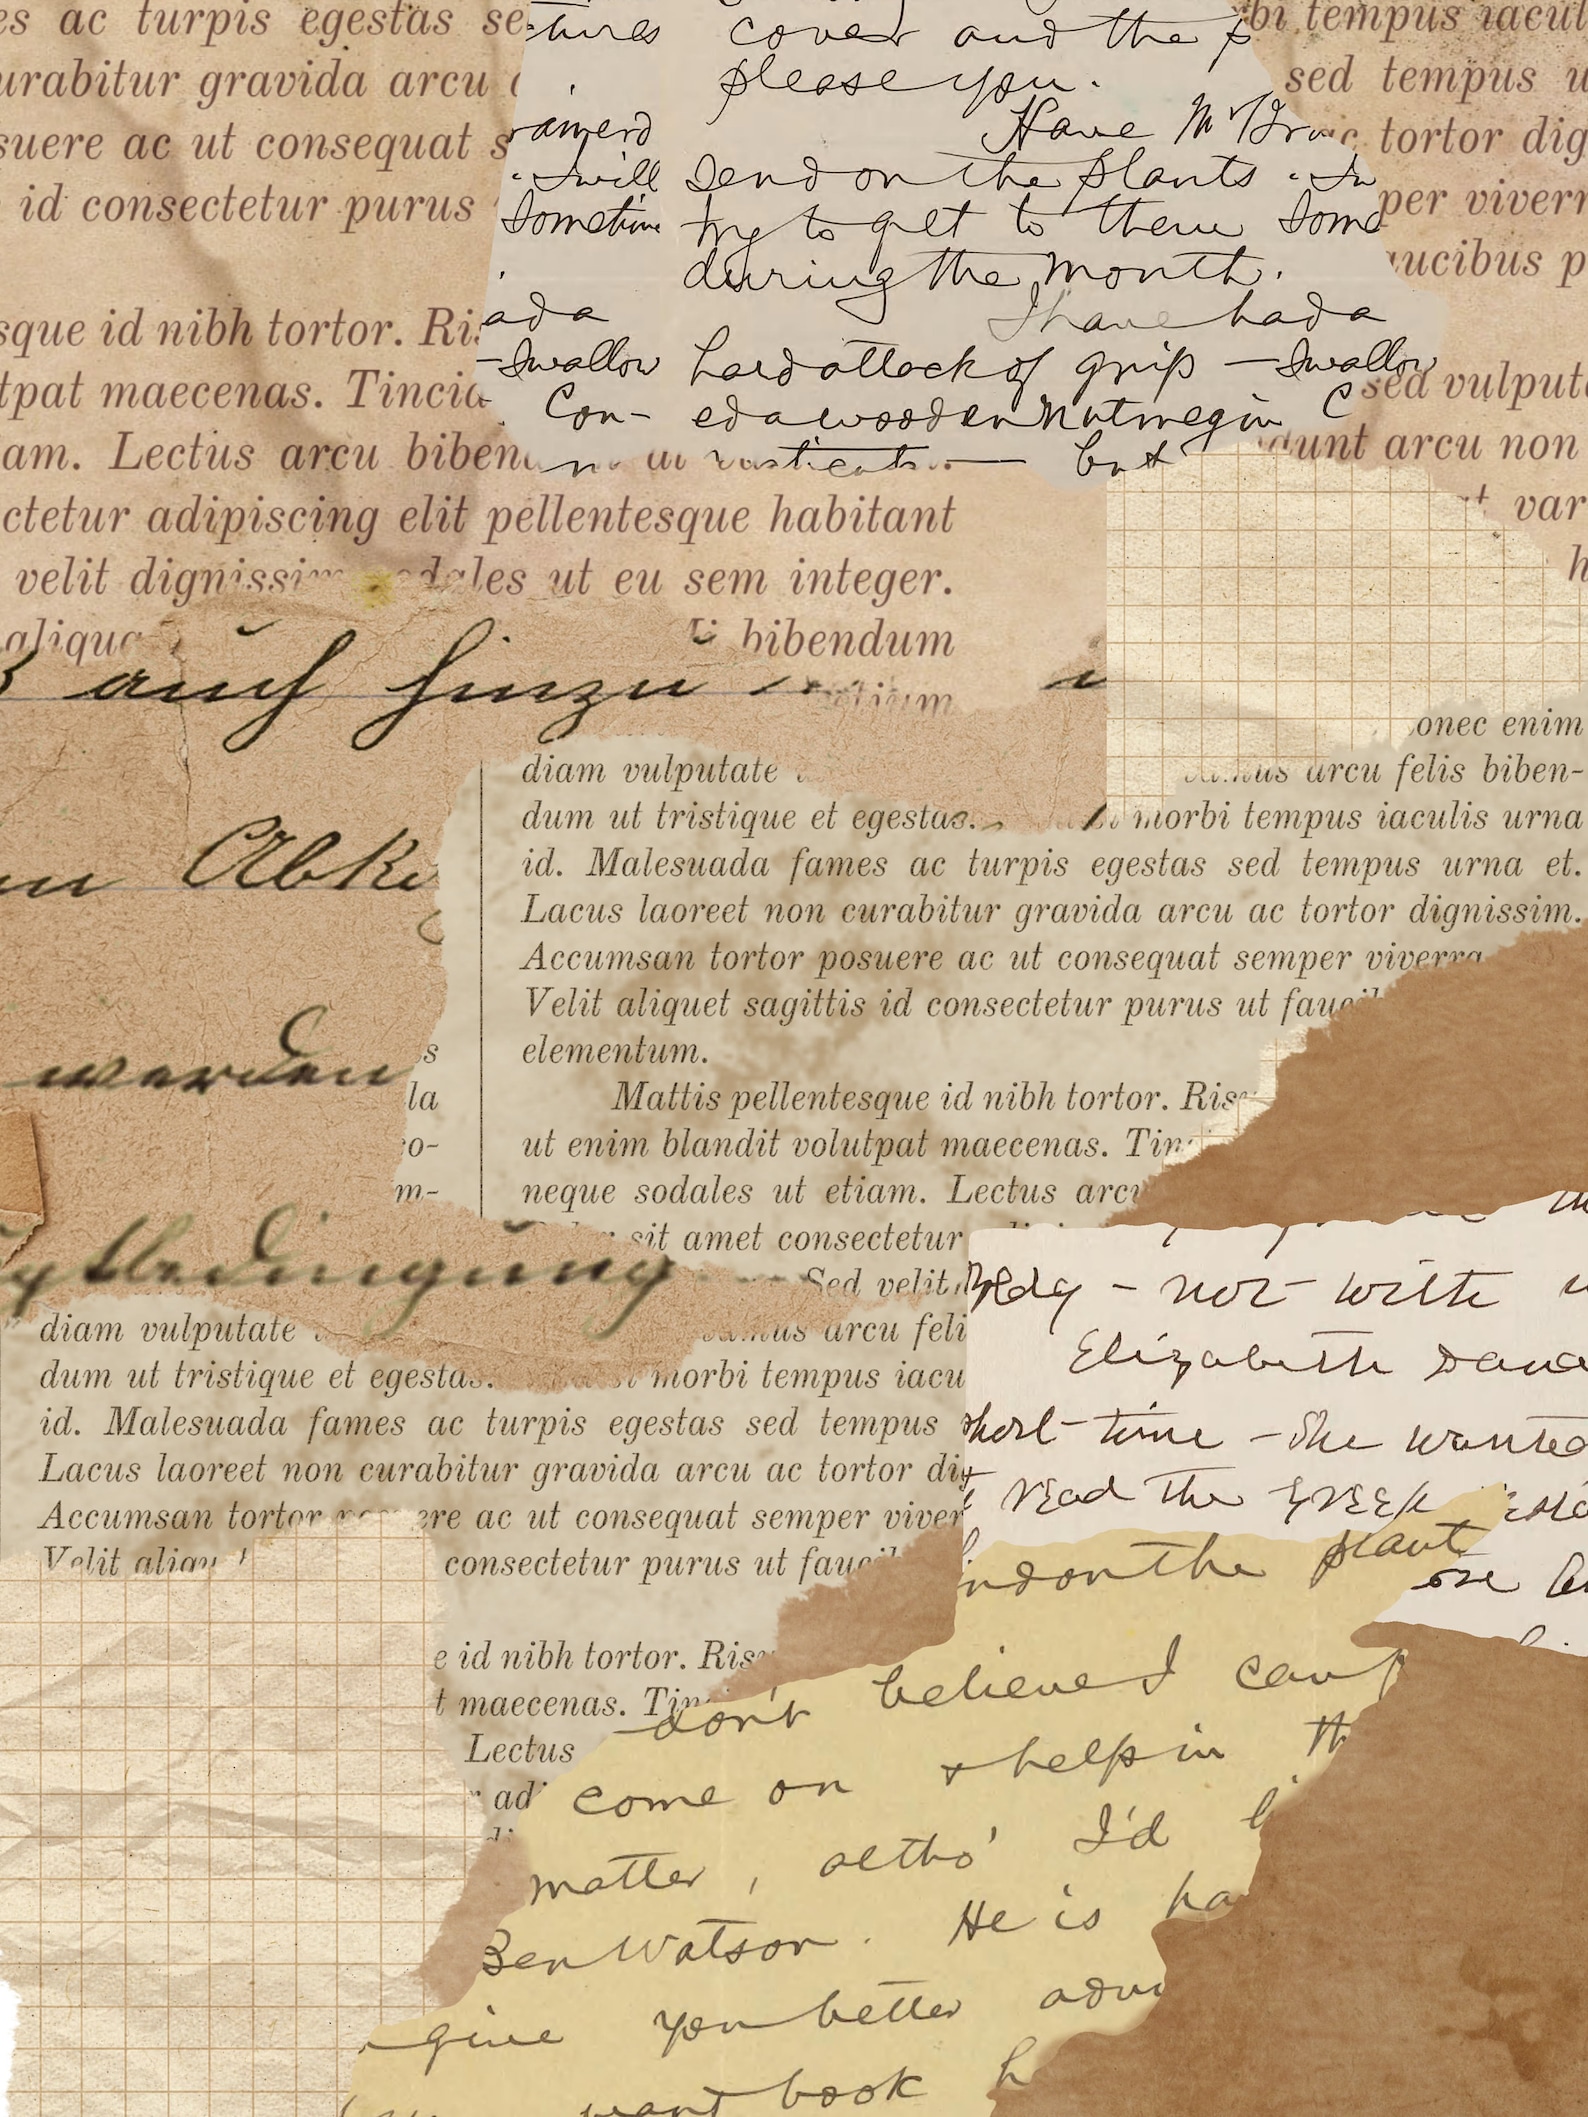 es ac turpis egestas se
urabitur gravida arcu
suere ac ut consequat s
id consectetur purus
sque id nibh tortor. Ris
tpat maecenas. Tincid
am. Lectus arcu biben
ctetur adipiscing elit pellentesque habitant
velit dignissim sodales ut eu sem integer.
aliqua bibendum
tures cover and the p
please you.
Have Mr
. I will send on the plants . In
Sometime try to get to them Some
during the month.
ada I have had a
- Swallow hard attack of grip - Swallow
Con- ed a wooden nutmeg in C
but
bi tempus iacul
sed tempus u
c tortor dig
per viverr
aucibus p
sed vulput
dunt arcu non
t var
h
auch hinzu
werden
diam vulputate
onec enim
arcu felis biben-
dum ut tristique et egestas. morbi tempus iaculis urna
id. Malesuada fames ac turpis egestas sed tempus urna et.
Lacus laoreet non curabitur gravida arcu ac tortor dignissim.
Accumsan tortor posuere ac ut consequat semper viverra
Velit aliquet sagittis id consectetur purus ut faucib
elementum.
Mattis pellentesque id nibh tortor. Risu
ut enim blandit volutpat maecenas. Tin
neque sodales ut etiam. Lectus arcu
sit amet consectetur
Sed velit
s
la
co-
m-
diam vulputate arcu feli
dum ut tristique et egestas. morbi tempus iacu
id. Malesuada fames ac turpis egestas sed tempus
Lacus laoreet non curabitur gravida arcu ac tortor dig
Accumsan tortor posuere ac ut consequat semper viver
Velit aliqu consectetur purus ut faucib
e id nibh tortor. Risu
t maecenas. Tin
Lectus
ad
- not with
Elizabeth
short time - She wanted
read the Greek
nd on the plant
don't believe I can
come on + help in th
matter, altho' I'd l
Ben Watson. He is ha
give you better advi
want book h